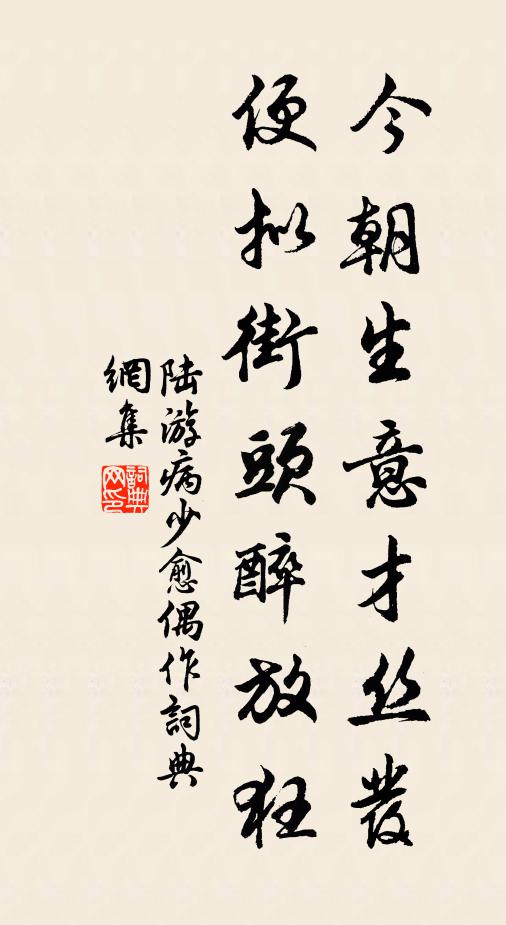 今朝生意才丝發
便拟街頭醉放狂
陆游病少愈偶作詞典
網集
詞典网印